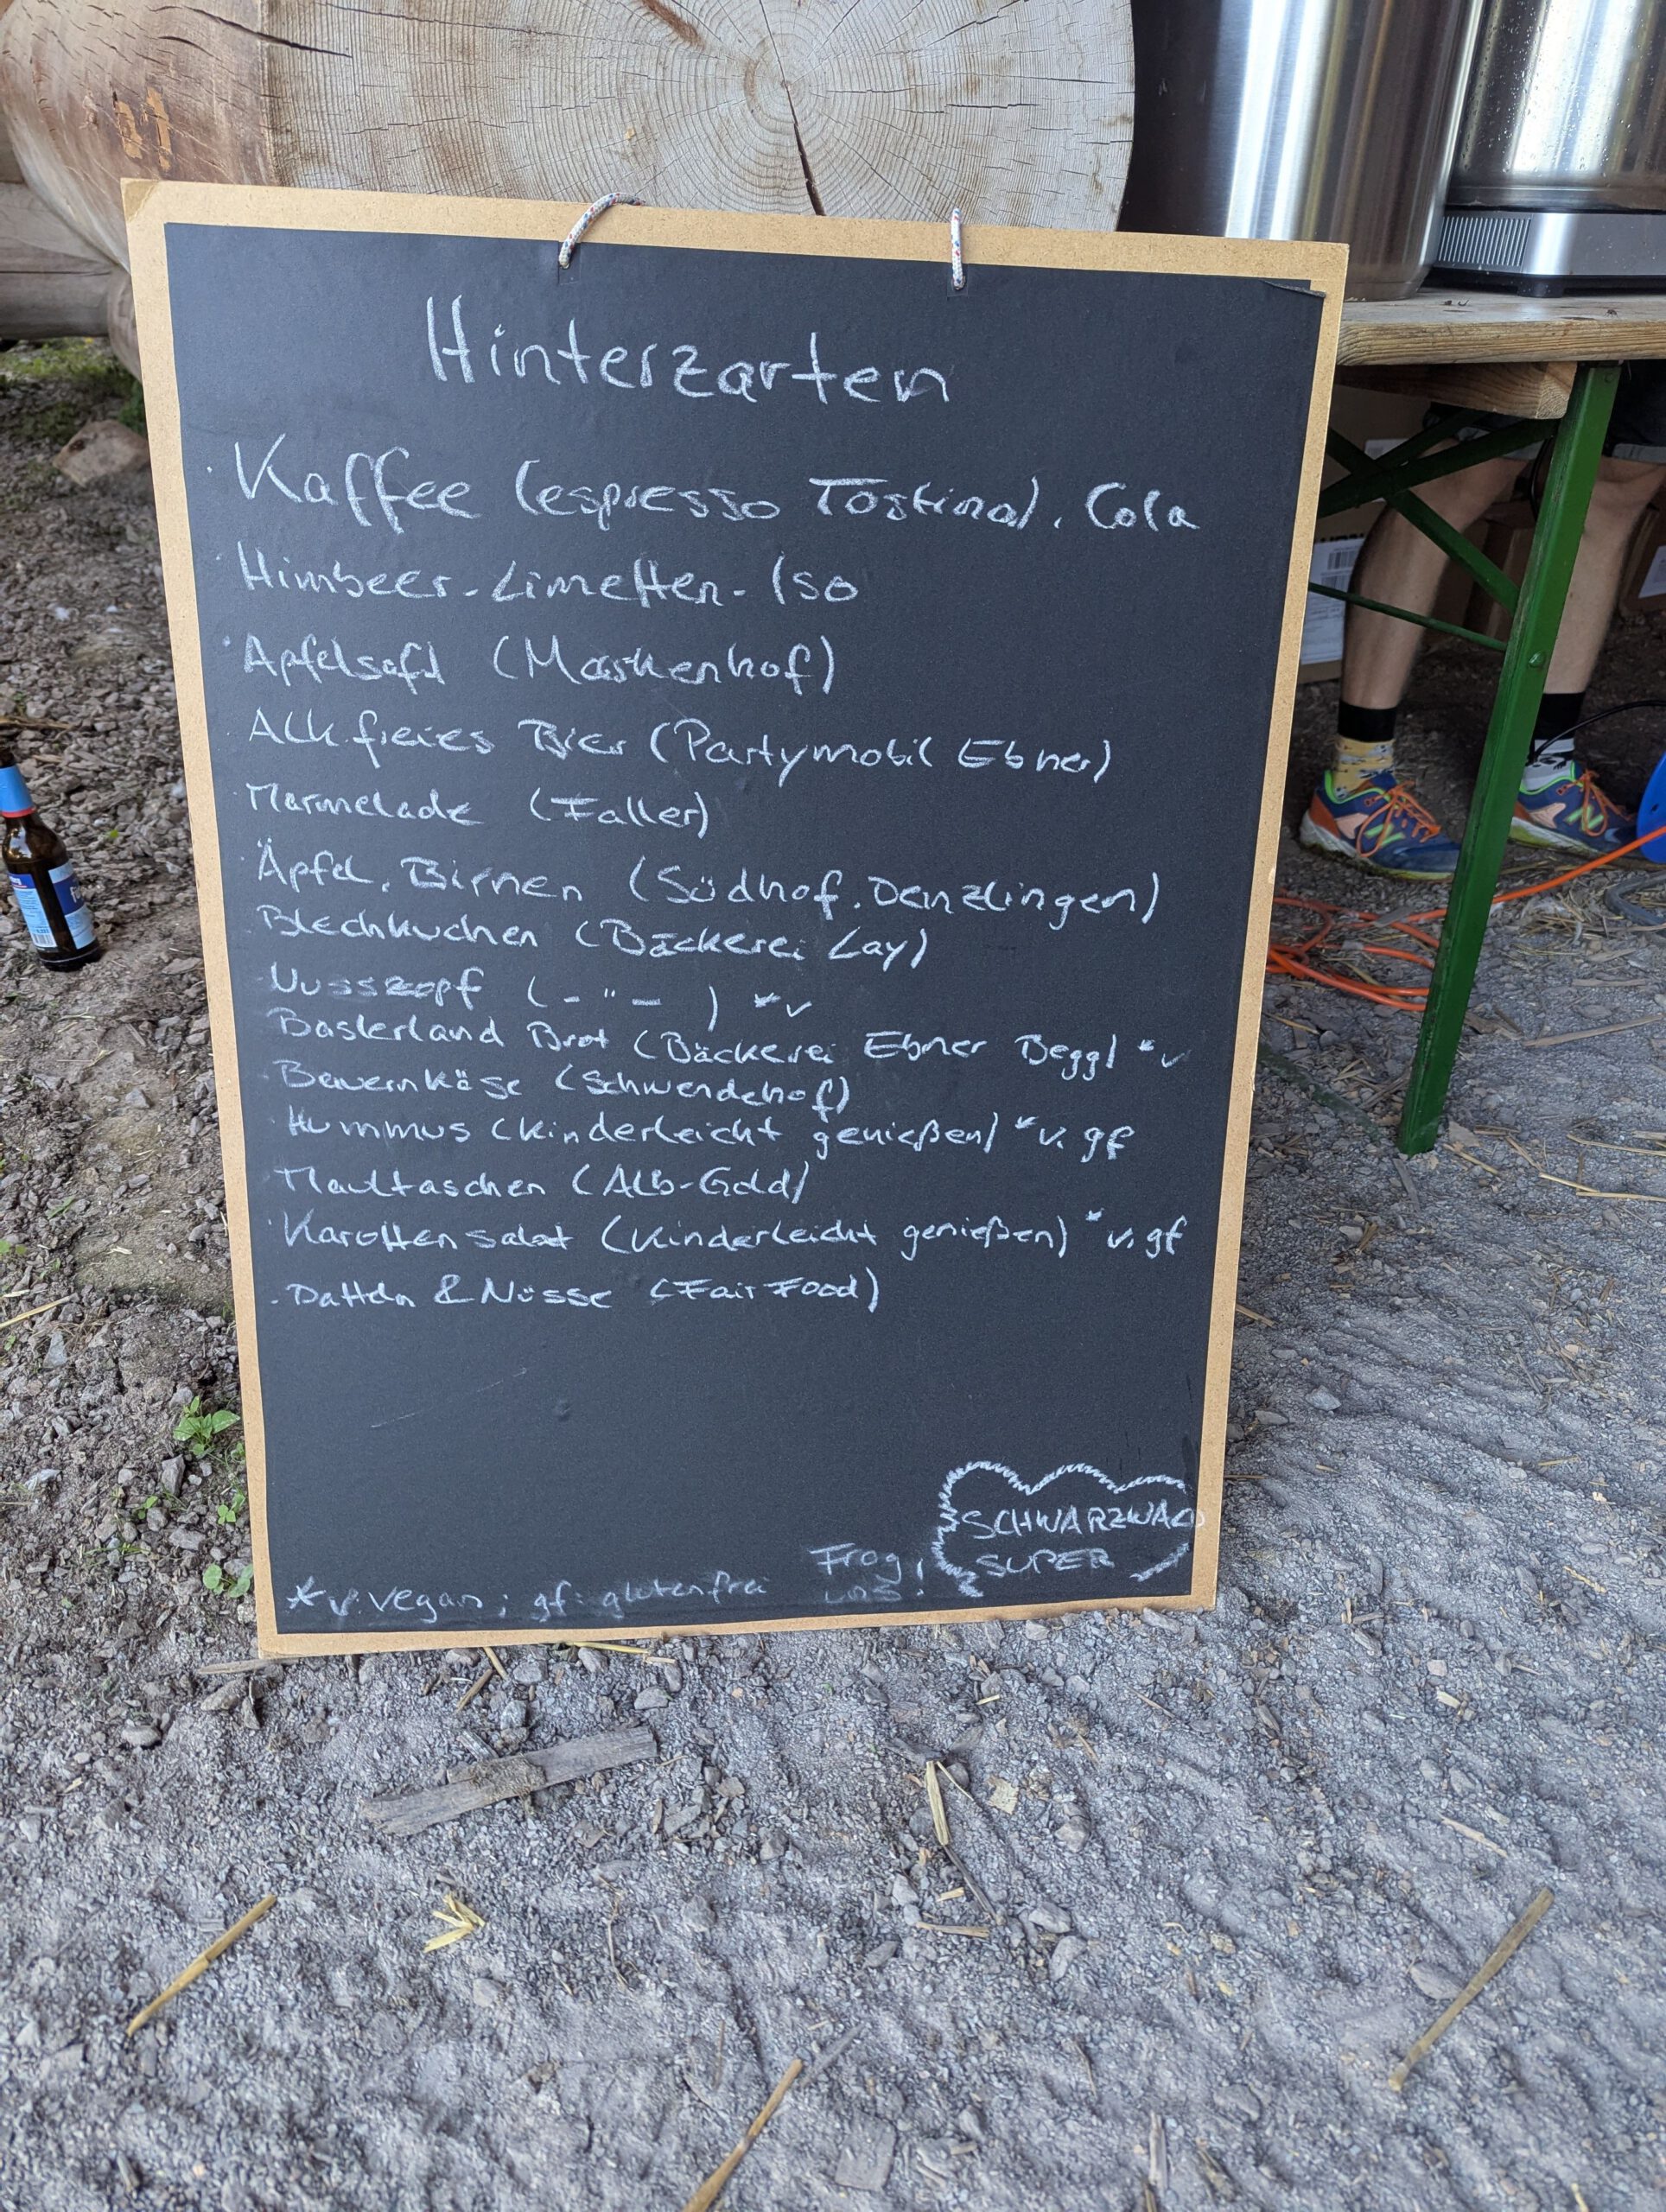 Hinterzarten
· Kaffee (espresso Tostino), Cola
· Himbeer-Limetten-Iso
· Apfelsaft (Markenhof)
· Alkfreies Bier (Partymobil Ebner)
· Marmelade (Faller)
· Äpfel, Birnen (Südhof, Denzlingen)
· Blechkuchen (Bäckerei Lay)
· Nusszopf (-"-) *v
· Baslerland Brot (Bäckerei Ebner Begg) *v
· Bauernkäse (Schwendehof)
· Hummus (kinderleicht genießen) *v. gf
· Maultaschen (Alb-Gold)
· Karottensalat (Kinderleicht genießen) *v. gf
· Datteln & Nüsse (FairFood)
SCHWARZWALD
SUPER
Frag
uns!
*v: vegan; gf: glutenfrei